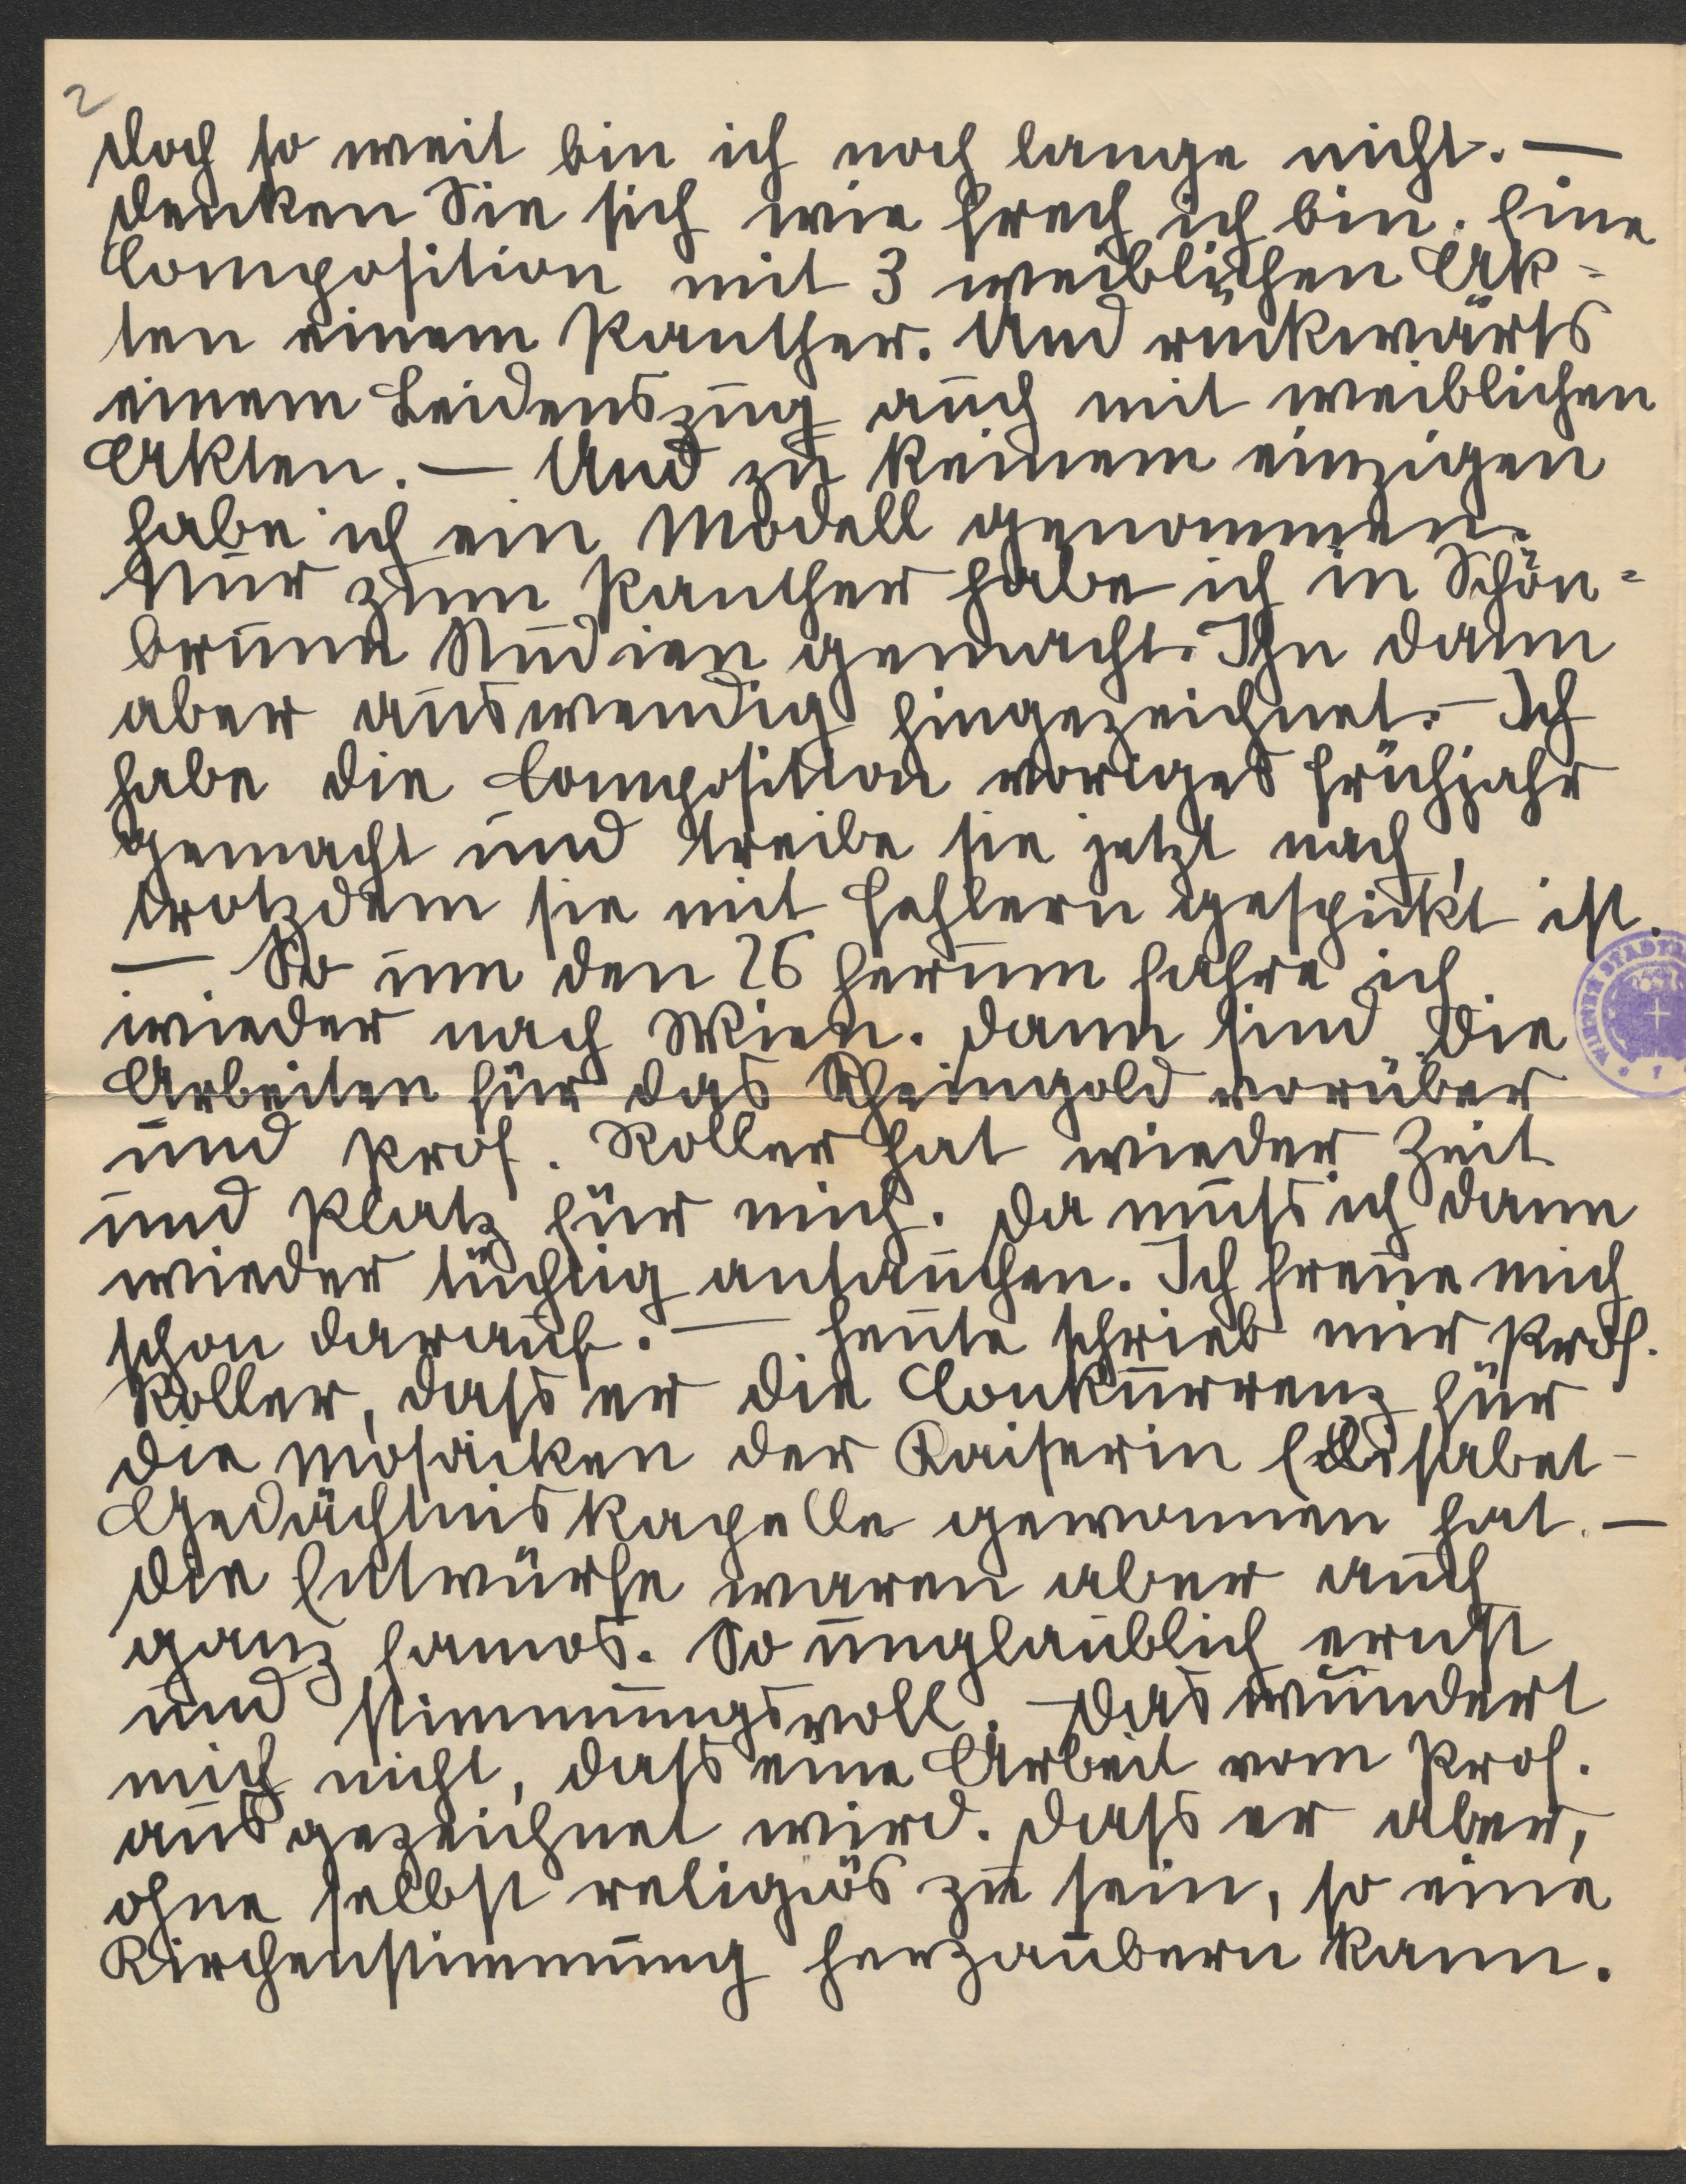 2
doch so weit bin ich noch lange nicht. —
Denken Sie sich wie frech ich bin. Eine
Composition mit 3 weiblichen Ak=
ten einem Panther. Und rückwärts
einem Leidenszug auch mit weiblichen
Akten. — Und zu keinem einzigen
habe ich ein Modell genommen.
Nur zum Panther habe ich in Schön=
brunn Studien gemacht. Ihn dann
aber auswendig hingezeichnet. — Ich
habe die Composition voriges Frühjahr
gemacht und treibe sie jetzt nach,
trotzdem sie mit Fehlern gespickt ist.
— So um den 26 herum fahre ich
wieder nach Wien. Dann sind die
Arbeiten für das Rheingold vorüber
und Prof. Roller hat wieder Zeit
und Platz für mich. Da muss ich dann
wieder tüchtig antauchen. Ich freue mich
schon darauf. — Heute schrieb mir Prof.
Roller, dass er die Conkurrenz für
die Mosaiken der Kaiserin Elisabet-
Gedächtniskapelle gewonnen hat. —
Die Entwürfe waren aber auch
ganz famos. So unglaublich ernst
und stimmungsvoll. — Das wundert
mich nicht, dass eine Arbeit vom Prof.
ausgezeichnet wird. Dass er aber,
ohne selbst religiös zu sein, so eine
Kirchenstimmung herzaubern kann.